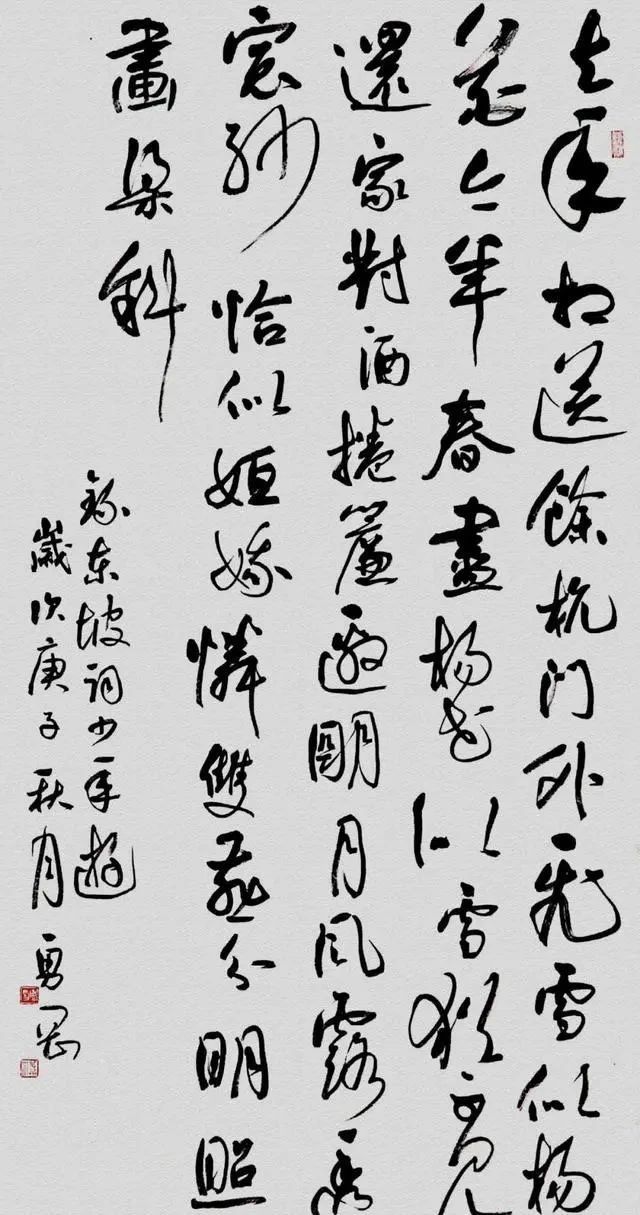 去年相送餘杭門外飛雪似楊
花今年春盡楊花似雪猶不見
還家對酒捲簾邀明月風露透
窓紗恰似姮娥憐雙燕分明照
畫梁斜
錄東坡詞少年遊
歲次庚子秋月勇